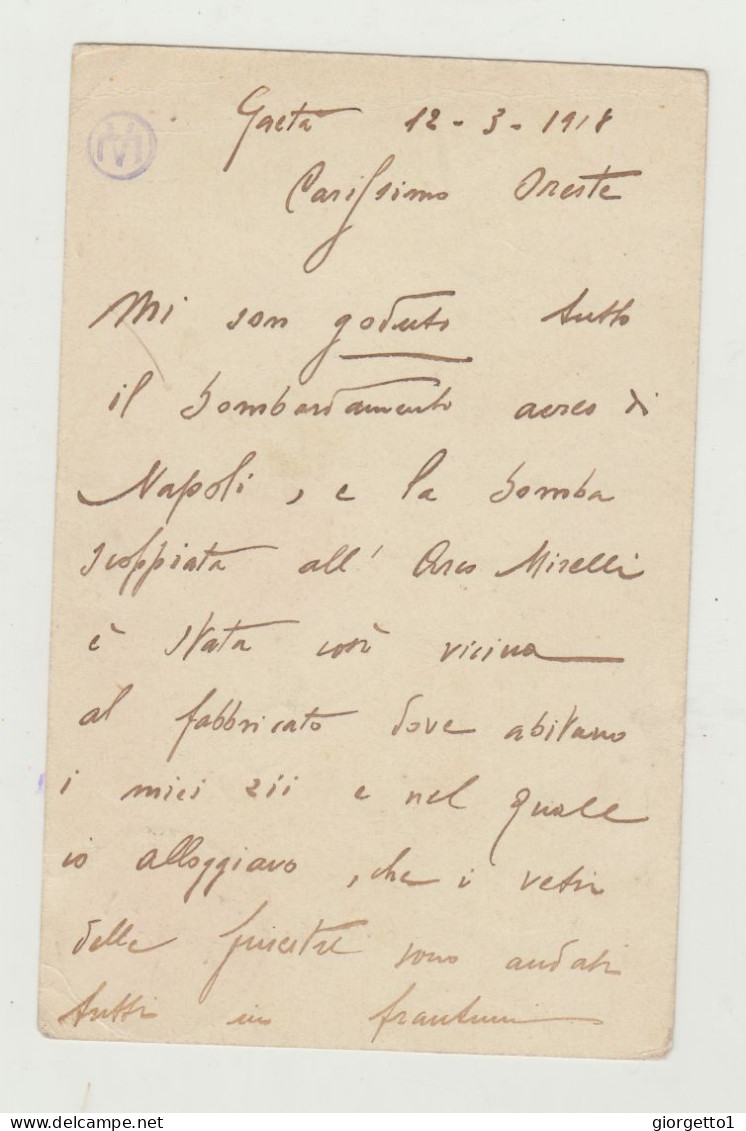 Gaeta 12-3-1918
Carissimo Oreste
Mi son goduto tutto
il bombardamento aereo di
Napoli, e la bomba
scoppiata all' Arco Mirelli
è stata così vicina
al fabbricato dove abitano
i miei zii e nel quale
io alloggiavo, che i vetri
delle finestre sono andati
tutti in frantumi
delcampe.net
giorgetto1